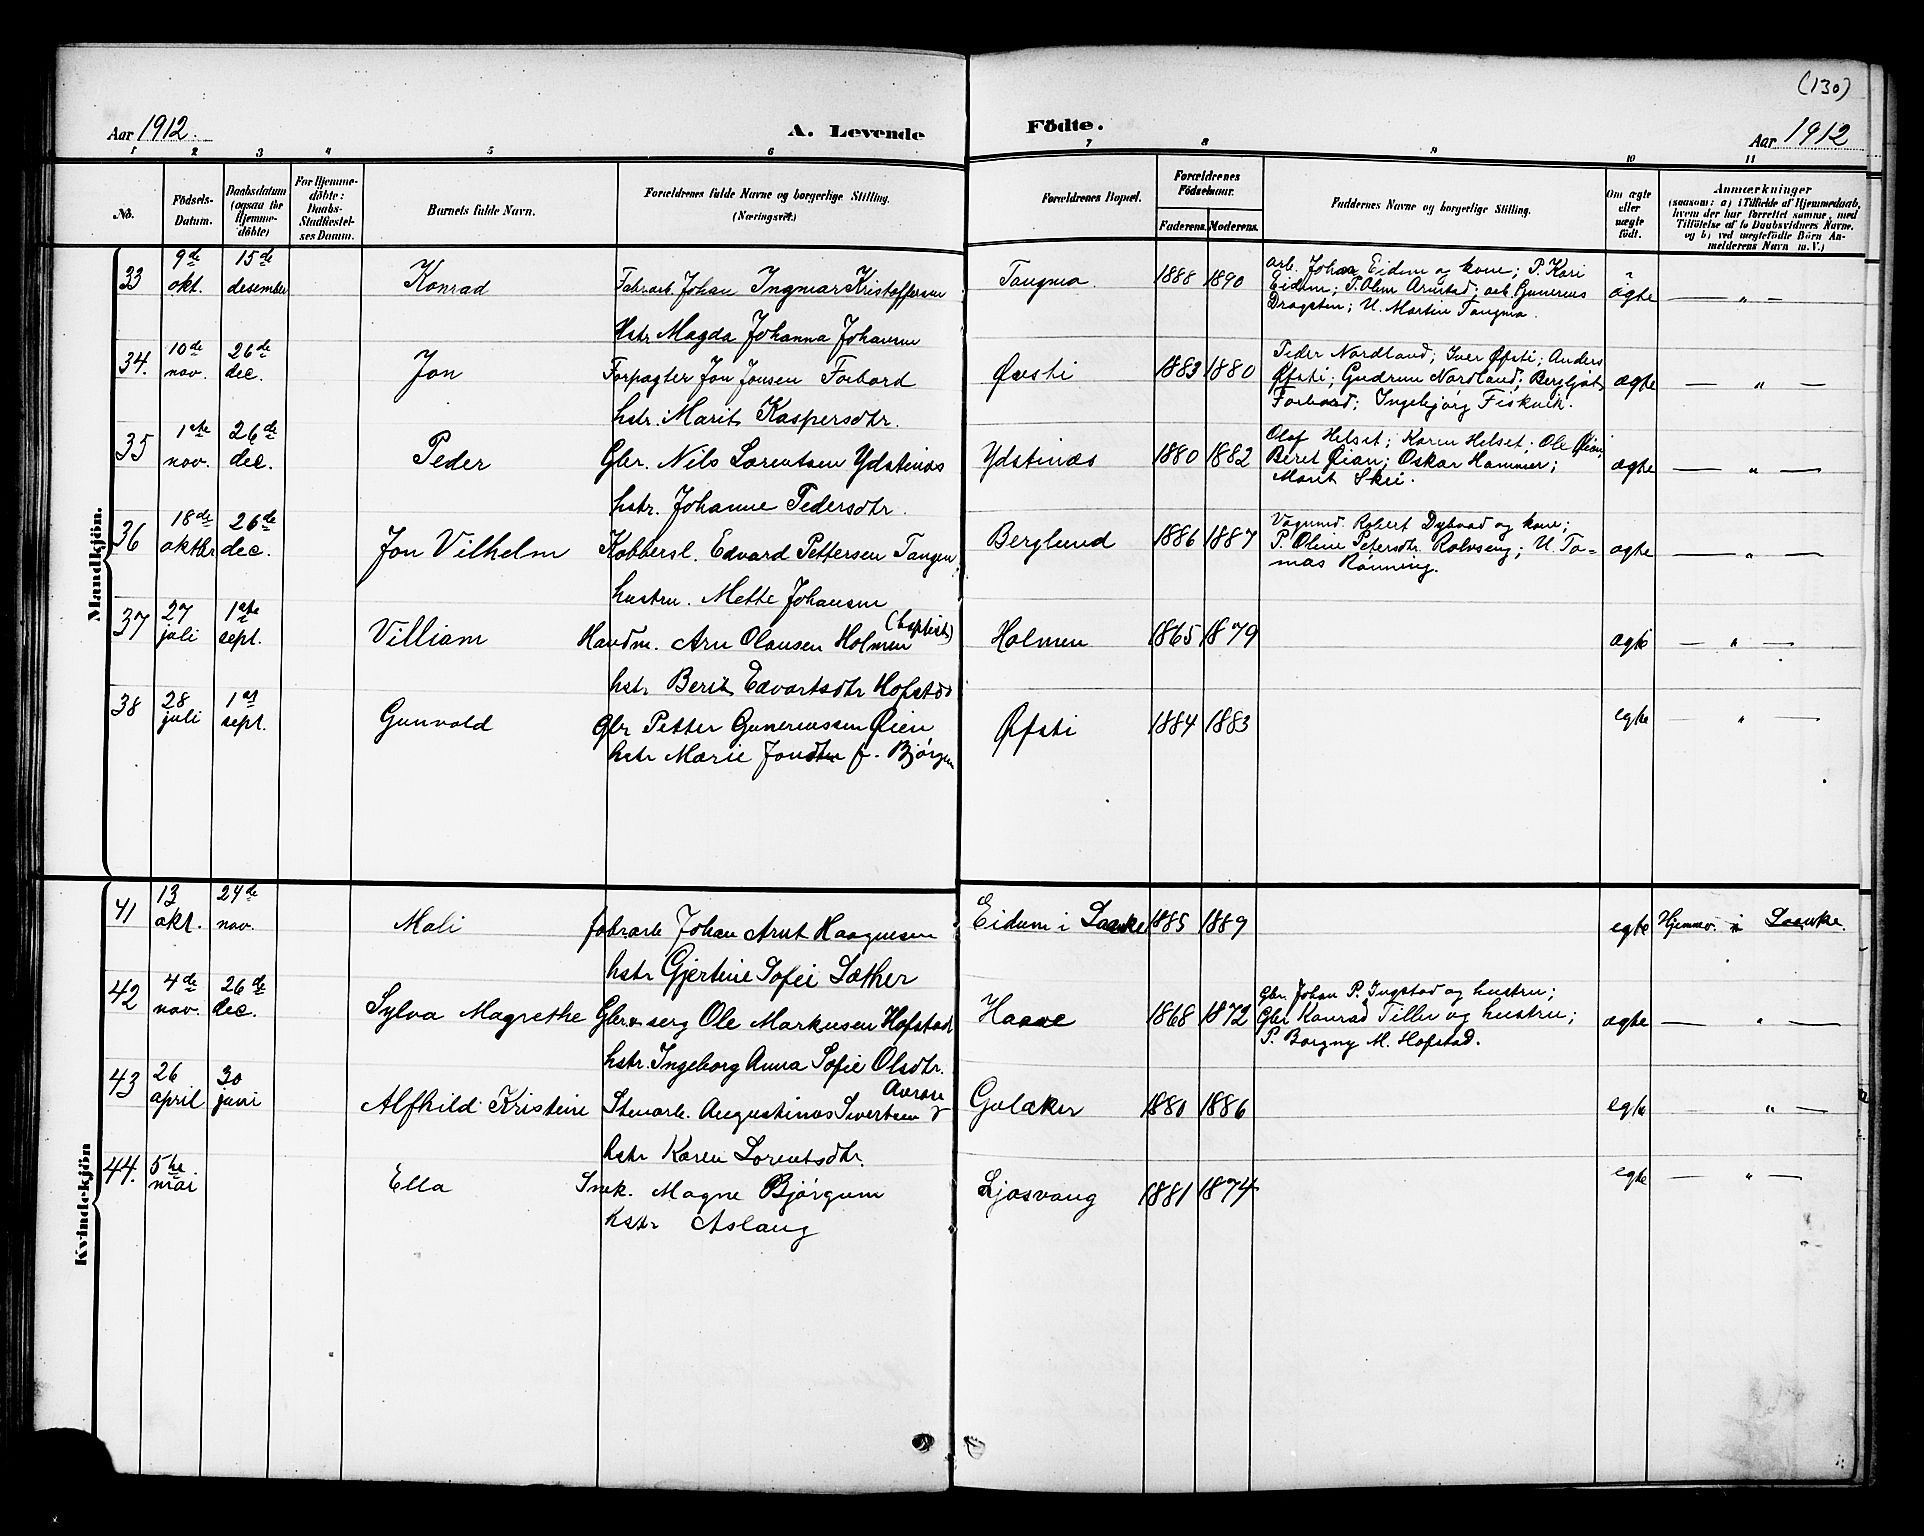 (130)
Aar 1912. A. Levende Födte. Aar 1912
1 2 3 4 5 6 7 8 9 10 11
No. Födsels-Datum. Daabsdatum (ogsaa for Hjemme-döbte) For Hjemme-döbte: Daabs-Stadfæstel-ses Datum. Barnets fulde Navn. Forældrenes fulde Navne og borgerlige Stilling. (Næringsvei.) Forældrenes Bopæl. Forældrenes Födselsaar. Faderens. Moderens. Faddernes Navne og borgerlige Stilling. Om ægte eller uægte födt. Anmærkninger (saasom: a) i Tilfælde af Hjemmedaab, hvem der har forrettet samme, med Tilföielse af to Daabsvidners Navne, og b) ved uægtefödte Börn An-melderens Navn m. V.)
Mandkjön.
33 9de okt. 15de desember Konrad Fabrarb. Johan Ingmar Kristoffersen Tangmo. 1888 1890 arb. Johan Eidum og kone; P. Kari
Eidum; P. Oline Arnstad; arb. Gunerius ægte — " —
Dragsten; U. Martin Tangmo.
Hstr Magda Johanna Johansen
34. 10de nov. 26de dec. Jon Forpagter Jon Jonsen Forbord Øvsti 1883 1880 Peder Nordland; Iver Øfsti; Anders
Øfsti; Gudrun Nordland; Bergljot ægte — " —
Forbord; Ingebjørg Fiskvik.
hstr. Marit Kaspersdtr.
35 1ste nov. 26de dec. Peder Gbr. Nils Lorentsen Ydstinæs Ydstinæs 1880 1882 Olaf Helset; Karen Helset; Ole Øian,
Beret Øian; Oskar Hammer; ægte — " —
Marit Skei.
hstr. Johanne Pedersdtr.
36 18de oktbr 26de dec. Jon Vilhelm Kobbersl. Edvard Pettersen Tangen, Berglund 1886 1887 Vognmd. Robert Dybvad og kone;
P. Oline Petersdtr. Rolvseng; U. To- ægte — " —
mas Rönning.
hustru. Mette Johansen
37 27 juli 1ste sept. Villiam Handm. Arn Olausen Holmen (baptist) Holmen 1865 1879 ægte — " —
hstr Berit Edvartsdtr Hofstad
38 28 juli 1st sept. Gunvald Gbr Petter Guneriussen Øien Øfsti 1884 1883 egte — " —
hstr Marie Jondtr f. Bjørgum
Kvindekjön
41 13 okt. 24de nov. Mali fabrarb Johan Arnt Haagensen Eidum i Laanke 1885 1889 egte Hjemmev. i Laanke.
hstr Gjertine Sofie Sæther
42 4de nov. 26de dec. Sylva Magrethe Gbr & serg Ole Markusen Hofstad Haave 1868 1872 Gbr. Johan P. Ingstad og hustru;
Gbr Konrad Tiller og hustru; ægte — " —
P. Borgny M. Hofstad.
hstr. Ingeborg Anna Sofie Olsdtr.
43 26 april 30 juni Alfhild Kristine Stenarb. Augustinus Sivertsen Gulaker 1880 1886 egte — " —
hstr Karen Lorentsdtr.
44. 5te mai Ella Snek. Magne Bjørgum Ljosvang 1881 1874 egte — " —
hstr Aslaug